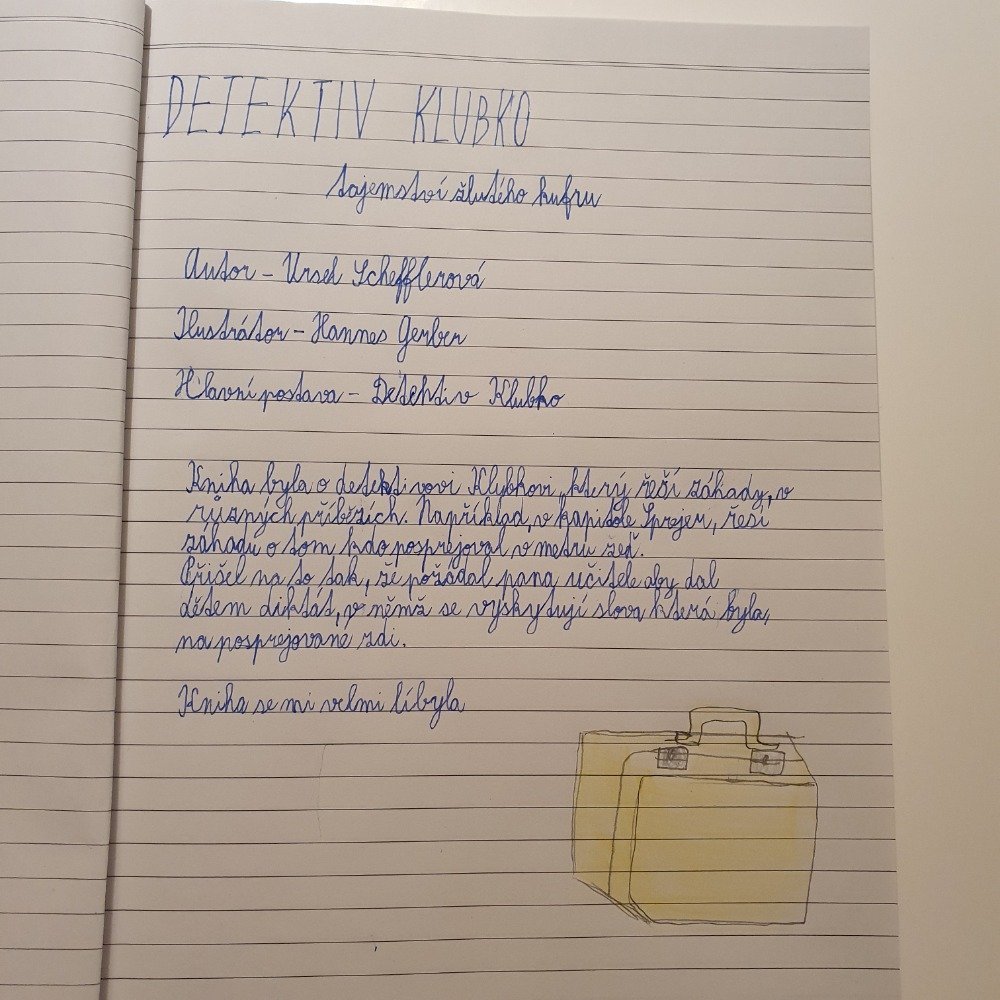 DETEKTIV KLUBKO
tajemství žlutého kufru
Autor - Ursel Schefflerová
Ilustrátor - Hannes Gerber
Hlavní postava - Detektiv Klubko
Kniha byla o detektivovi Klybkovi, který řeší záhady, v
různých příbězích. Například, v kapitole Sprejer, řeší
záhadu o tom kdo posprejoval v metru zeď.
Přišel na to tak, že požádal pana učitele aby dal
dětem diktát, v němž se vyskytují slova která byla,
na posprejované zdi.
Kniha se mi velmi líbyla